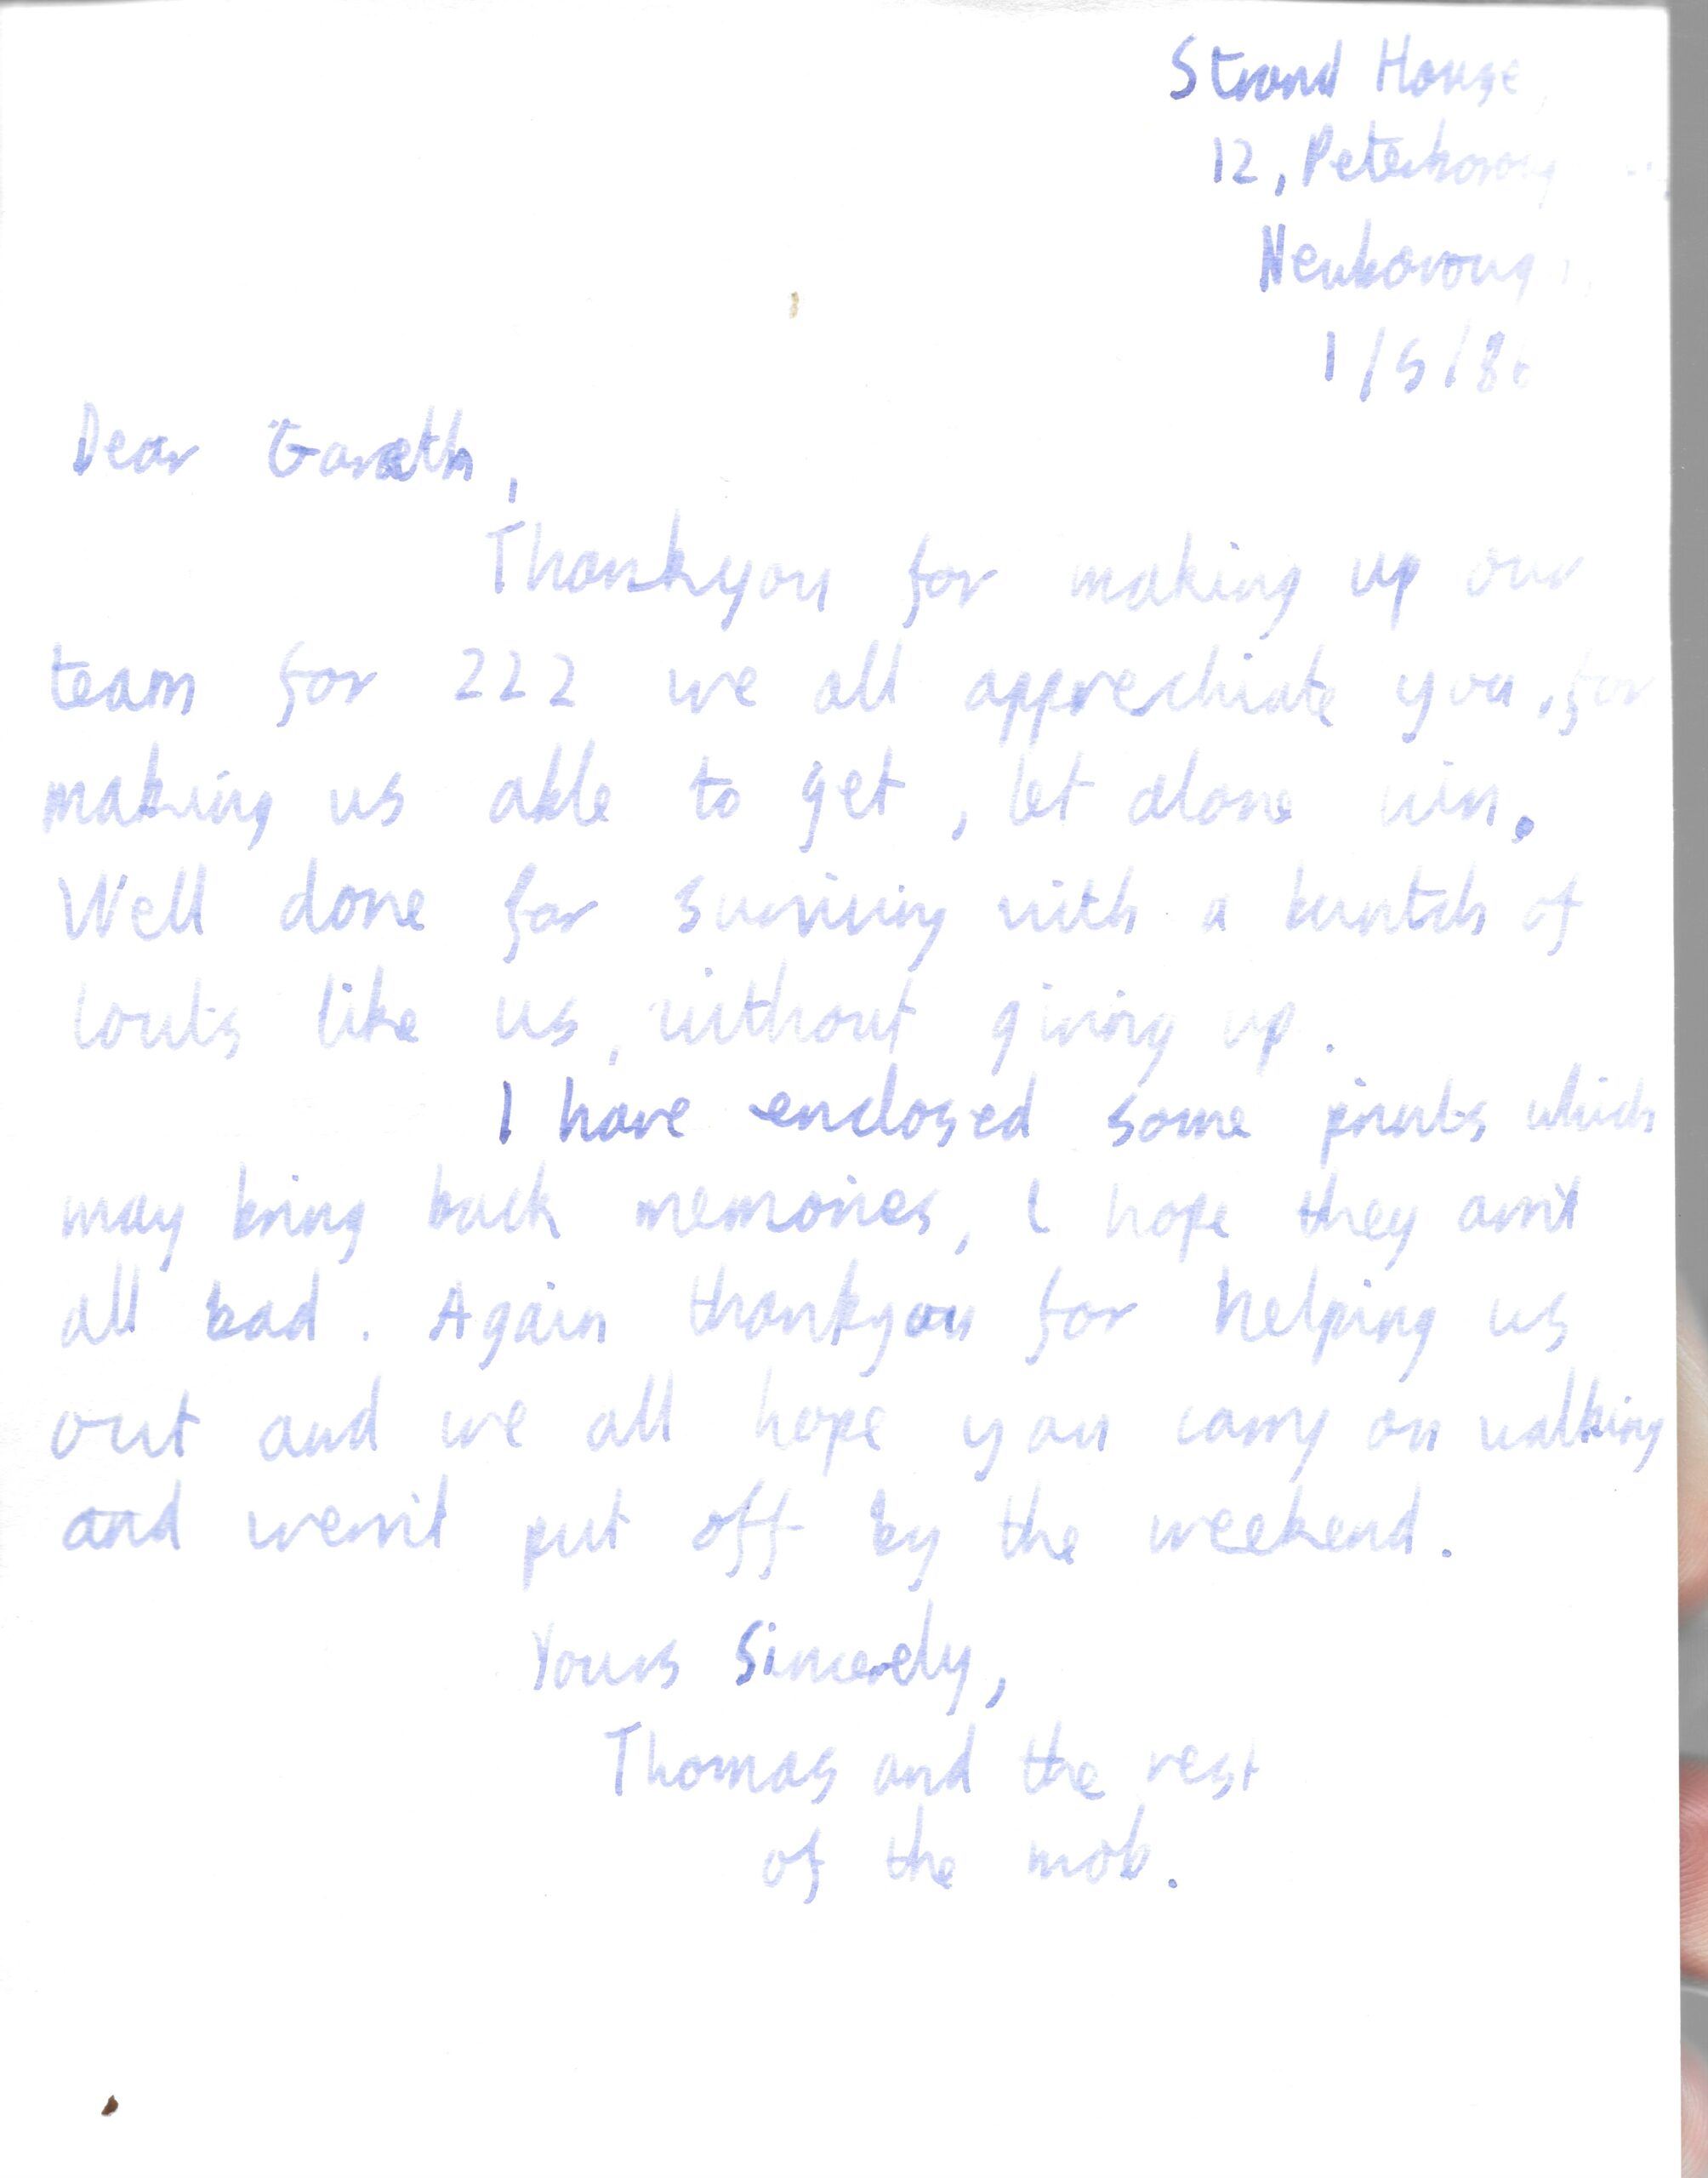 Strand House,
12, Peterboroug
Newboroug
1/5/86
Dear Gareth,
Thankyou for making up our
team for 222 we all apprechiate you, for
making us able to get, let alone win.
Well done for surviving with a buntch of
louts like us, without giving up.
I have enclosed some prints which
may bring back memories, I hope they ain't
all bad. Again thankyou for helping us
out and we all hope you carry on walking
and weren't put off by the weekend.
Yours Sincerely,
Thomas and the rest
of the mob.